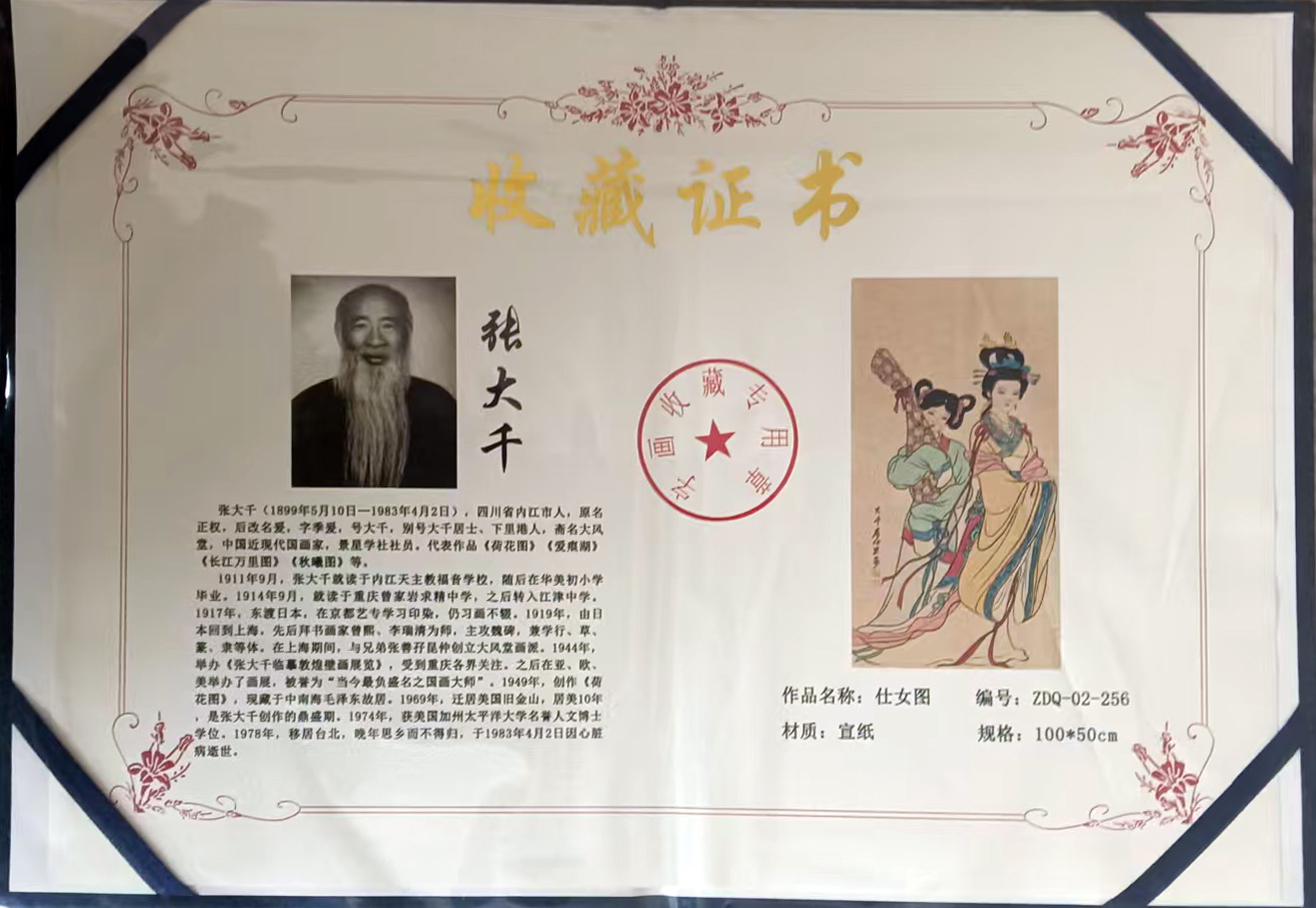 收藏证书
张大千
字画收藏专用章
张大千(1899年5月10日—1983年4月2日),四川省内江市人,原名
正权,后改名爰,字季爰,号大千,别号大千居士、下里港人,斋名大风
堂,中国近现代国画家,景星学社社员。代表作品《荷花图》《爱痕湖》
《长江万里图》《秋曦图》等。
1911年9月,张大千就读于内江天主教福音学校,随后在华美初小学
毕业。1914年9月,就读于重庆曾家岩求精中学,之后转入江津中学。
1917年,东渡日本,在京都艺专学习印染,仍习画不辍。1919年,由日
本回到上海,先后拜书画家曾熙、李瑞清为师,主攻魏碑,兼学行、草、
篆、隶等体。在上海期间,与兄弟张善孖昆仲创立大风堂画派。1944年,
举办《张大千临摹敦煌壁画展览》,受到重庆各界关注。之后在亚、欧、
美举办了画展,被誉为“当今最负盛名之国画大师”。1949年,创作《荷
花图》,现藏于中南海毛泽东故居。1969年,迁居美国旧金山,居美10年
,是张大千创作的鼎盛期。1974年,获美国加州太平洋大学名誉人文博士
学位。1978年,移居台北,晚年思乡而不得归,于1983年4月2日因心脏
病逝世。
作品名称:仕女图 编号:ZDQ-02-256
材质:宣纸 规格:100*50cm